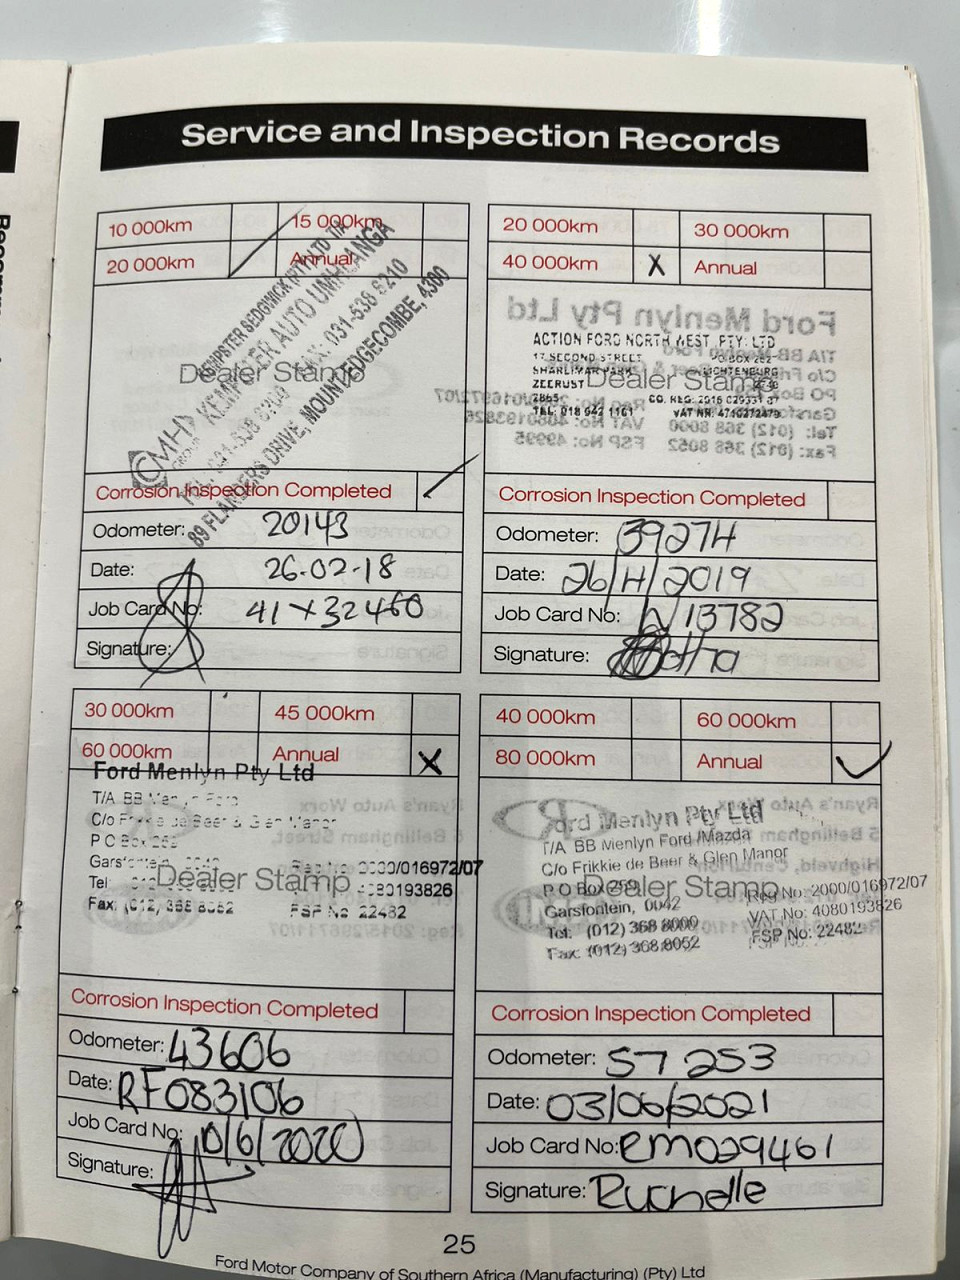 Service and Inspection Records
10 000km 15 000km
20 000km Annual
KEMPSTER SEDGWICK (PTY) LTD T/A
CMH KEMPSTER AUTO UMHLANGA
FAX: 031-538 8210
89 FLANDERS DRIVE, MOUNT EDGECOMBE, 4300
Dealer Stamp
Corrosion Inspection Completed
Odometer: 20143
Date: 26-02-18
Job Card No: 41 x 32460
Signature:
20 000km 30 000km
40 000km X Annual
Ford Menlyn Pty Ltd
ACTION FORD NORTH WEST PTY. LTD
17 SECOND STREET P.O BOX 252
SHARLIMAR PARK LICHTENBURG
ZEERUST Dealer Stamp
2865 CO. REG: 2016 029331 07
TEL: 018 642 1161 VAT NR: 4740272479
Corrosion Inspection Completed
Odometer: 39274
Date: 26/4/2019
Job Card No: 13782
Signature:
30 000km 45 000km
60 000km Annual X
Ford Menlyn Pty Ltd
T/A BB Menlyn Ford
C/o Frikkie de Beer & Glen Manor
P O Box 259
Garsfontein, 0042 Reg No: 2000/016972/07
Tel: Dealer Stamp 4080193826
Fax: (012) 368 8052 FSP No 22482
Corrosion Inspection Completed
Odometer: 43606
Date: RF083106
Job Card No: 10/6/2020
Signature:
40 000km 60 000km
80 000km Annual ✓
Ford Menlyn Pty Ltd
T/A BB Menlyn Ford/Mazda
C/o Frikkie de Beer & Glen Manor
P O Box 259 Dealer Stamp Reg No: 2000/016972/07
Garsfontein, 0042 VAT No: 4080193826
Tel: (012) 368 8000 FSP No: 22482
Fax: (012) 368 8052
Corrosion Inspection Completed
Odometer: 57 253
Date: 03/06/2021
Job Card No: RM029461
Signature: Ruchelle
25
Ford Motor Company of Southern Africa (Manufacturing) (Pty) Ltd